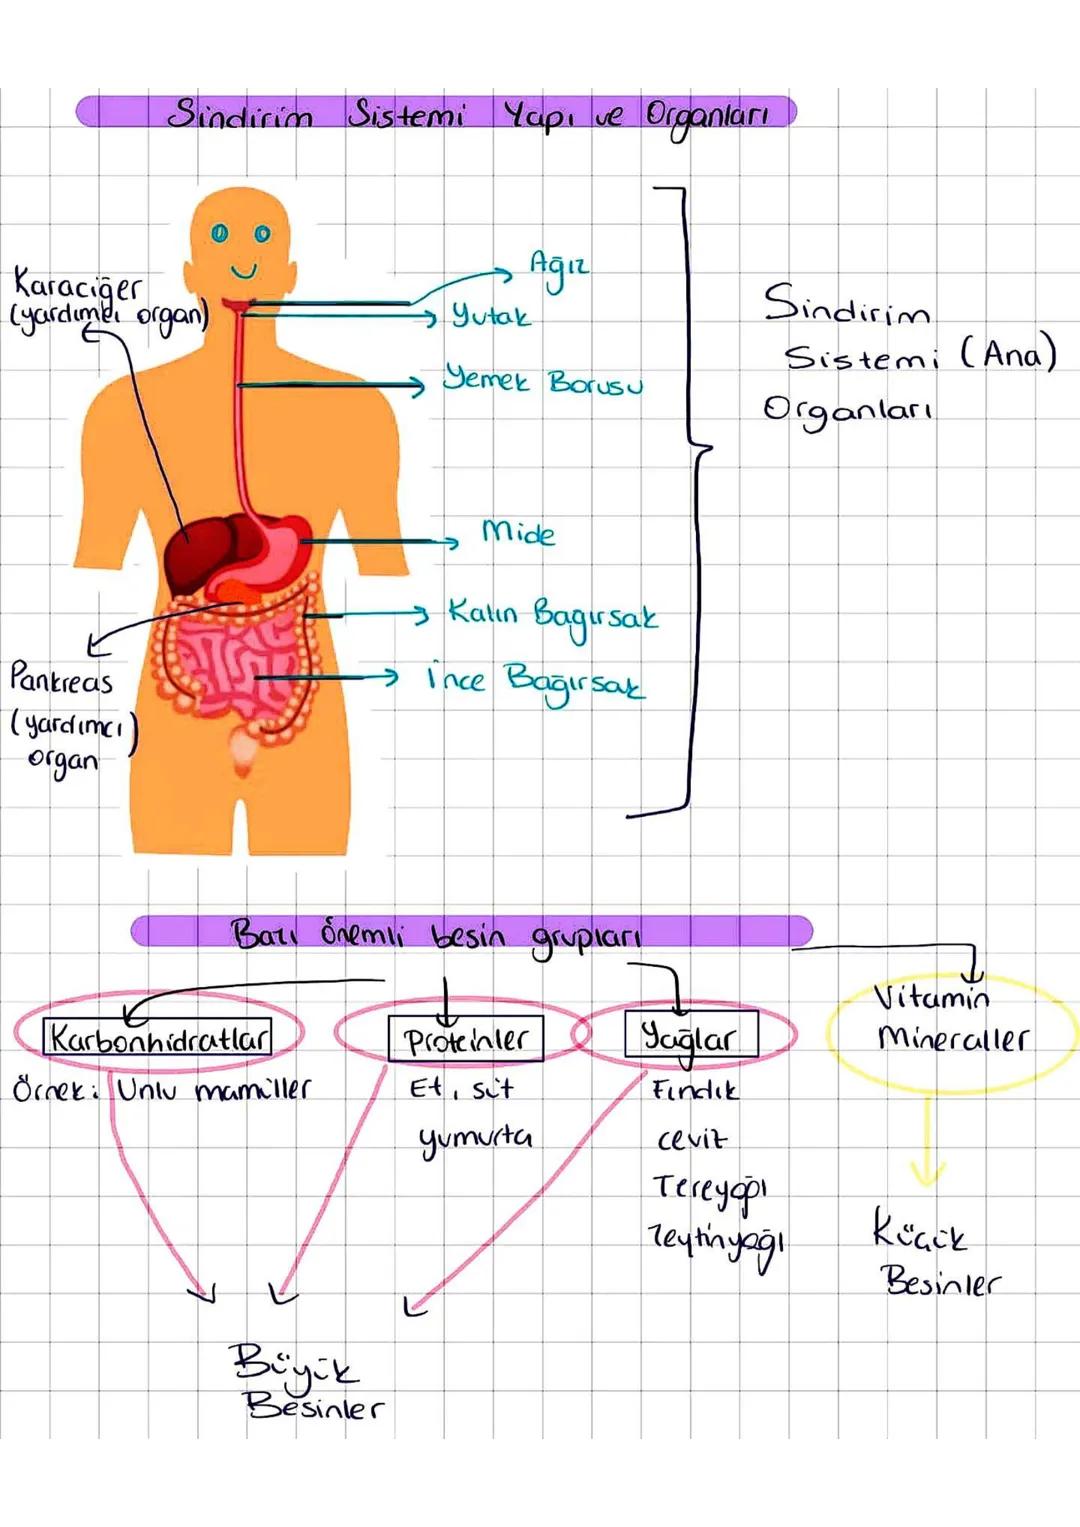 Sindirim Sistemi Yapı ve Organları
Ağız
Karaciğer
(yardımcı organ)
Yutak
Yemek Borusu
Sindirim
Sistemi (Ana)
Organları
Mide
Kalın Bagırsak
İnce Bağırsak
Pankreas
(yardımcı)
organ
Bazı önemli besin grupları
Karbonhidratlar
Proteinler
Yağlar
Vitamin
Mineraller
Örnek: Unlu mamüller
Et, süt
yumurta
Fındık
ceviz
Tereyağı
Zeytinyağı
Küçük
Besinler
Büyük
Besinler